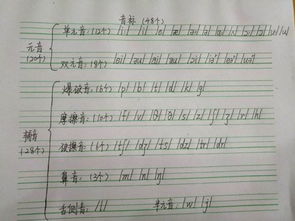 音标 (48个)
元音 (20个)
单元音: (12个) /i:/ /i/
双元音: (8个) /ei/ /ai/ /au/
辅音 (28个)
爆破音: (6个) /p/ /b/ /t/ /d/ /k/ /g/
摩擦音: (10个) /f/ /v/ /θ/ /ð/ /s/ /z/ /ʃ/ /ʒ/ /r/ /h/
破擦音: (6个) /tʃ/ /dʒ/ /ts/ /dz/ /tr/ /dr/
鼻音: (3个) /m/ /n/ /ŋ/
舌侧音: /l/ 半元音: /w/ /j/